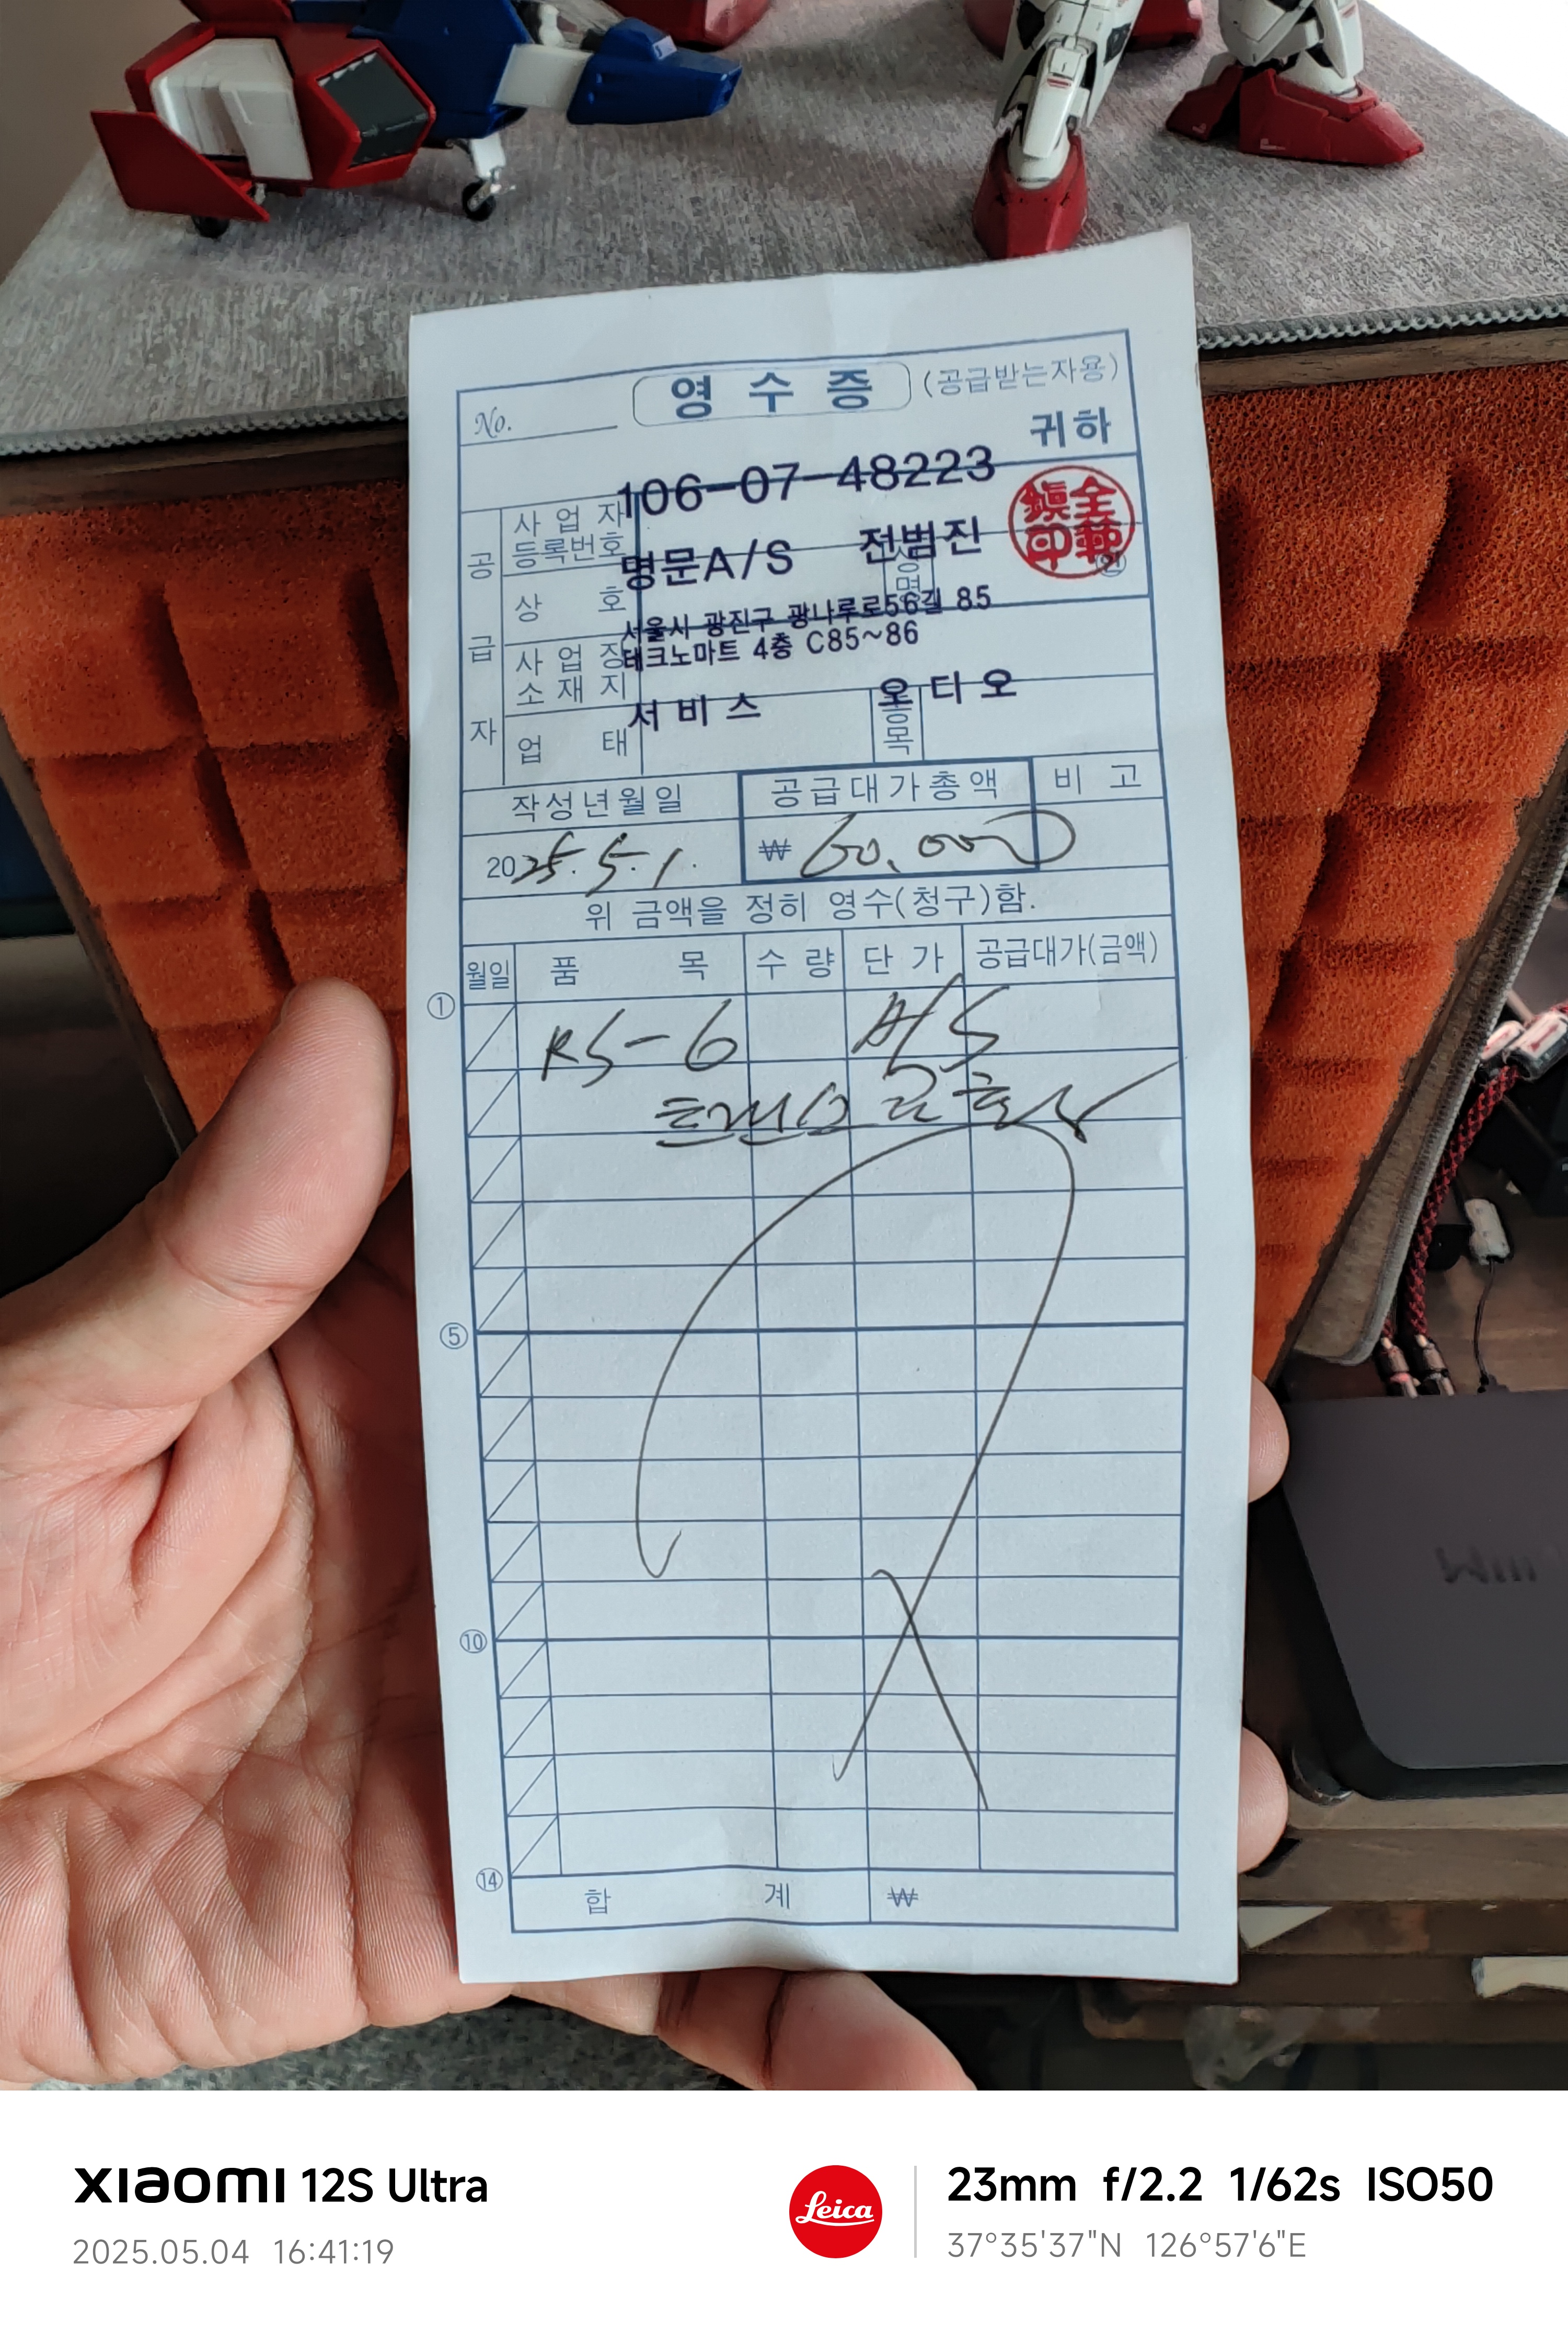 No. 영수증 (공급받는자용)
귀하
106-07-48223
공급자
사업자
등록번호
상호 명문A/S 성명 전범진 인
사업장
소재지
서울시 광진구 광나루로56길 85
테크노마트 4층 C85~86
업태 서비스 종목 오디오
작성년월일 공급대가총액 비고
2025.5.1. ₩ 60.000
위 금액을 정히 영수(청구)함.
월일 품목 수량 단가 공급대가(금액)
①
RS-6 A/S
트랜스
⑤
⑩
⑭
합계 ₩
Wiim
XIAOMI 12S Ultra
2025.05.04 16:41:19
Leica
23mm f/2.2 1/62s ISO50
37°35'37"N 126°57'6"E